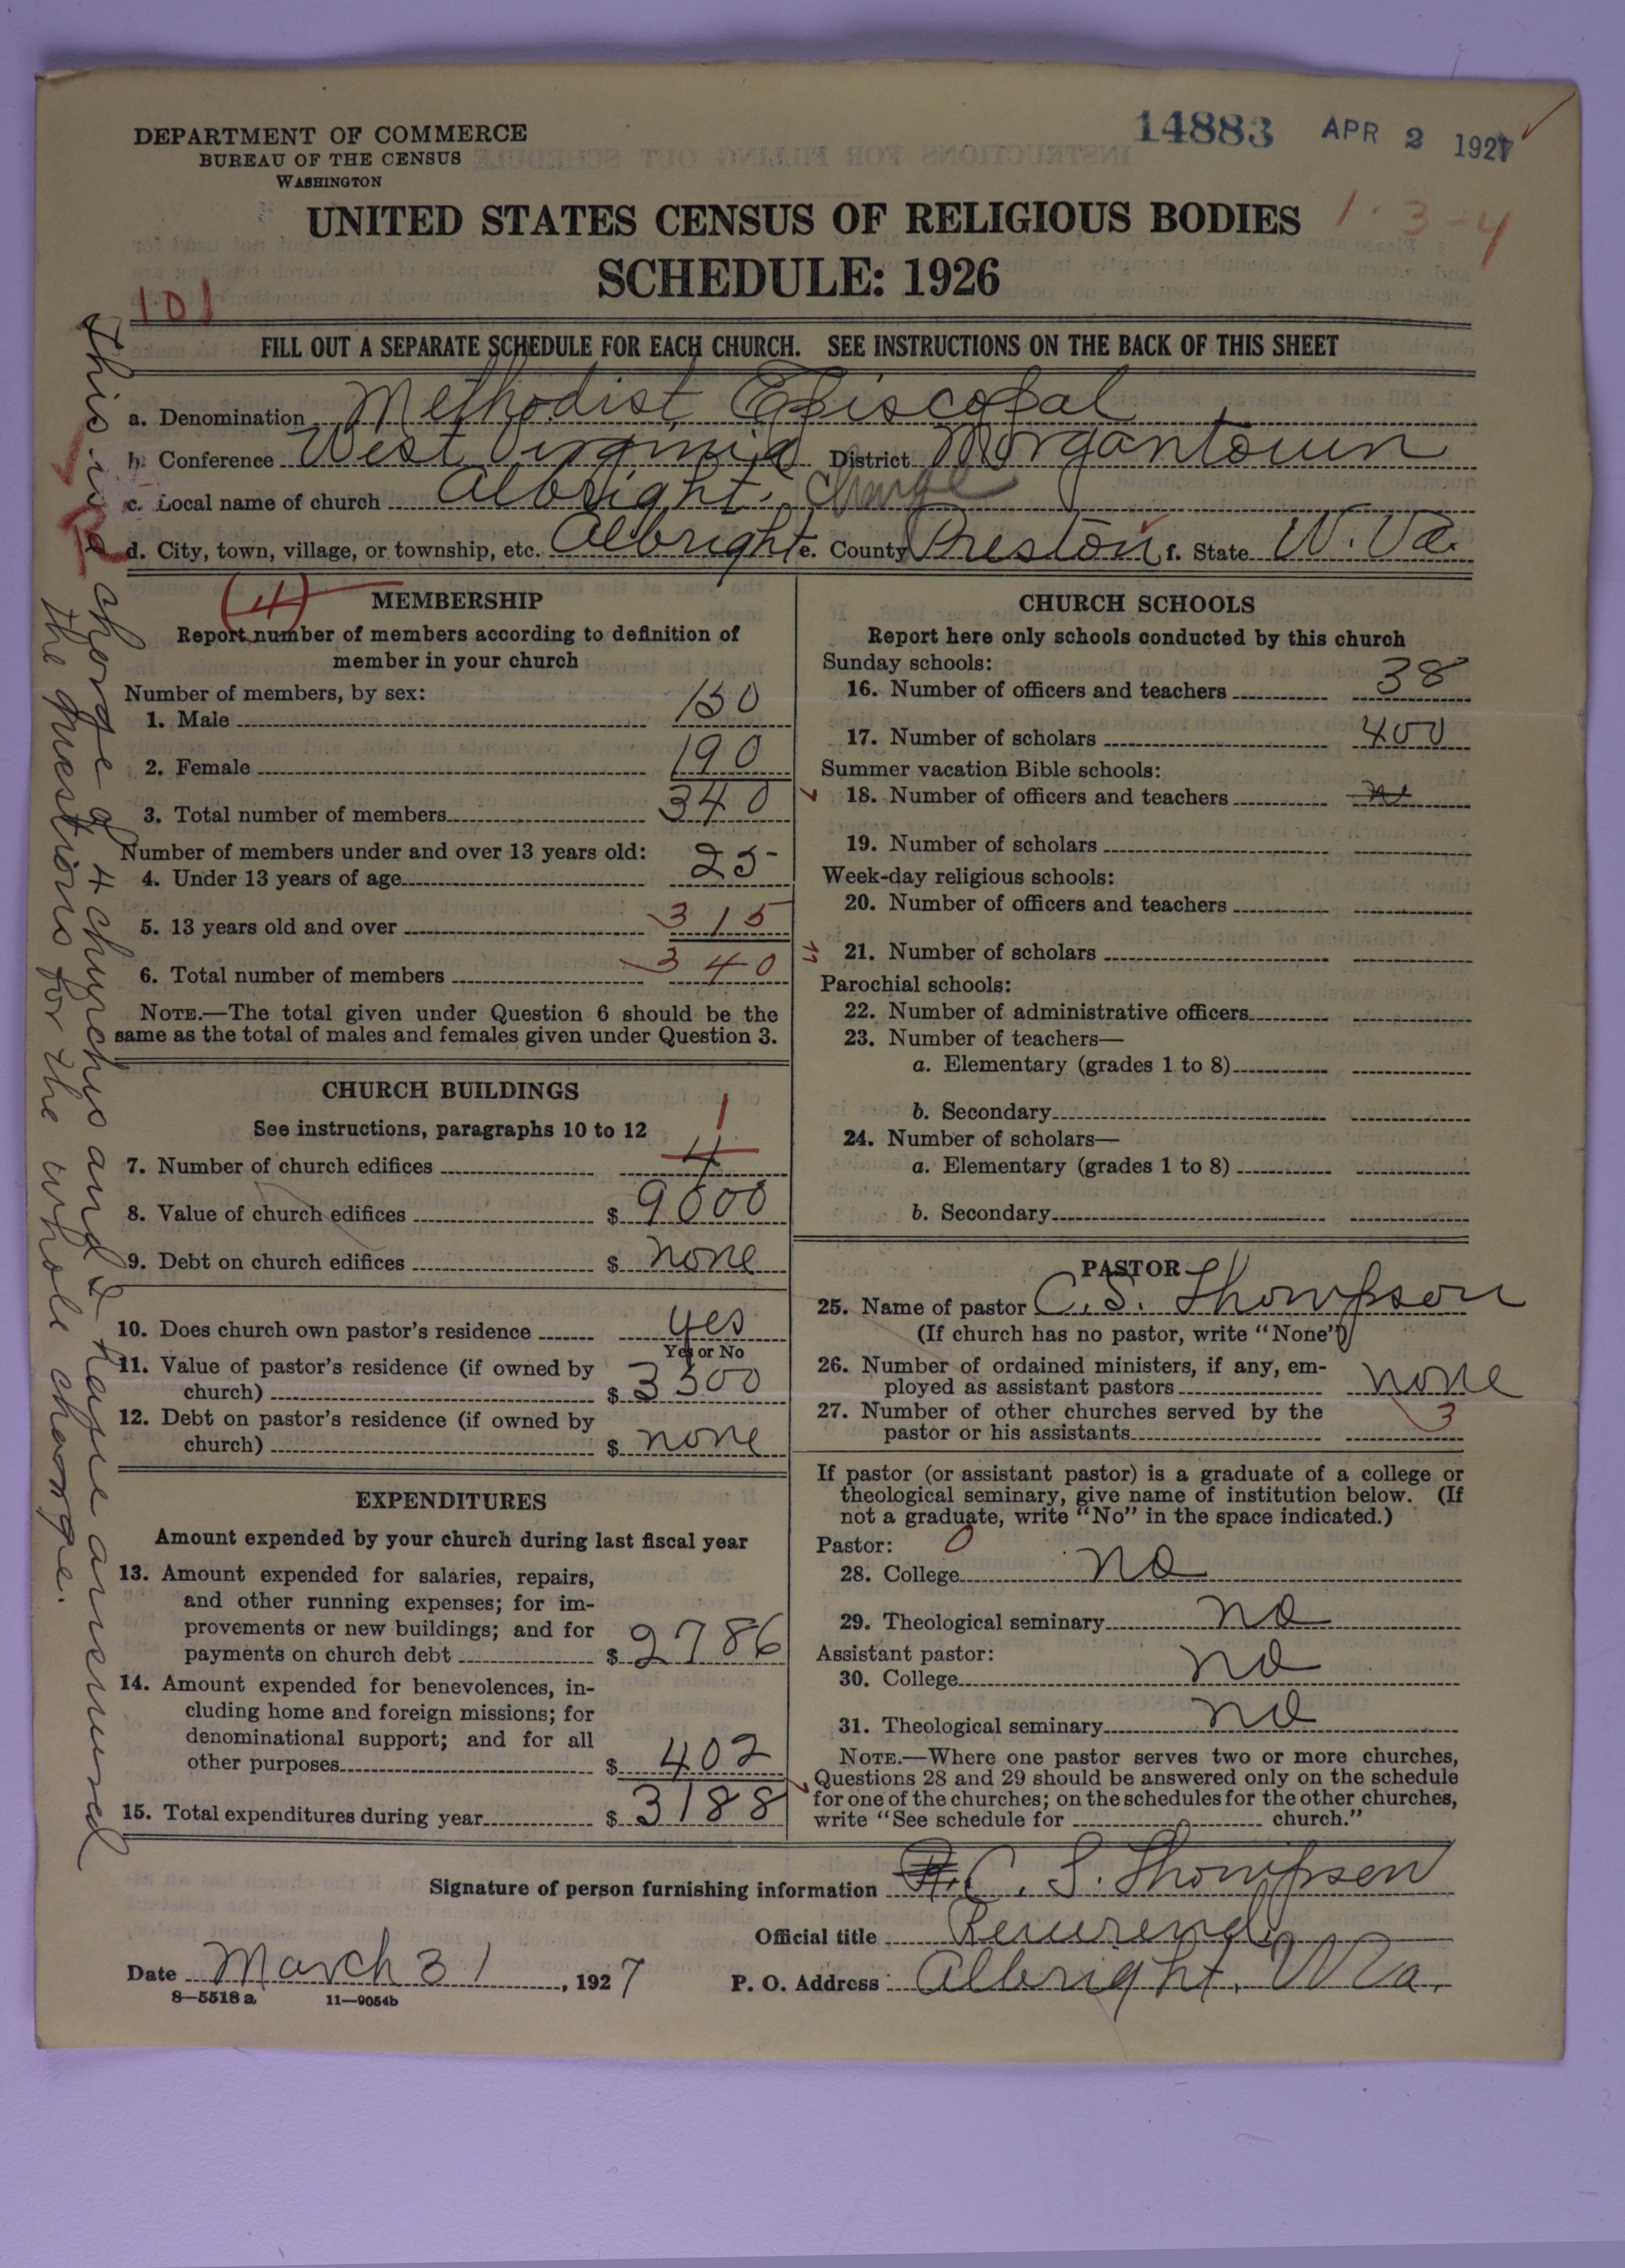 DEPARTMENT OF COMMERCE
BUREAU OF THE CENSUS
WASHINGTON
14883 APR 2 1927
UNITED STATES CENSUS OF RELIGIOUS BODIES
1-3-4
SCHEDULE: 1926
101
FILL OUT A SEPARATE SCHEDULE FOR EACH CHURCH. SEE INSTRUCTIONS ON THE BACK OF THIS SHEET
a. Denomination Methodist Episcopal
b. Conference West Virginia District Morgantown
c. Local name of church Albright, Charge
d. City, town, village, or township, etc. Albright e. County Preston f. State W. Va.
This is a charge of 4 churches and I have answered
the questions for the whole charge.
(4)
MEMBERSHIP
Report number of members according to definition of
member in your church
Number of members, by sex:
1. Male 150
2. Female 190
3. Total number of members 340
Number of members under and over 13 years old:
4. Under 13 years of age 25
5. 13 years old and over 315
6. Total number of members 340
NOTE.—The total given under Question 6 should be the
same as the total of males and females given under Question 3.
CHURCH BUILDINGS
See instructions, paragraphs 10 to 12
1
7. Number of church edifices 4
8. Value of church edifices $ 9000
9. Debt on church edifices $ none
10. Does church own pastor's residence yes
Yes or No
11. Value of pastor's residence (if owned by
church) $ 3500
12. Debt on pastor's residence (if owned by
church) $ none
EXPENDITURES
Amount expended by your church during last fiscal year
13. Amount expended for salaries, repairs,
and other running expenses; for im-
provements or new buildings; and for
payments on church debt $ 2786
14. Amount expended for benevolences, in-
cluding home and foreign missions; for
denominational support; and for all
other purposes $ 402
15. Total expenditures during year $ 3188
CHURCH SCHOOLS
Report here only schools conducted by this church
Sunday schools:
16. Number of officers and teachers 38
17. Number of scholars 400
Summer vacation Bible schools:
18. Number of officers and teachers
19. Number of scholars
Week-day religious schools:
20. Number of officers and teachers
21. Number of scholars
Parochial schools:
22. Number of administrative officers
23. Number of teachers—
a. Elementary (grades 1 to 8)
b. Secondary
24. Number of scholars—
a. Elementary (grades 1 to 8)
b. Secondary
PASTOR
25. Name of pastor C. S. Thompson
(If church has no pastor, write "None")
26. Number of ordained ministers, if any, em-
ployed as assistant pastors none
27. Number of other churches served by the
pastor or his assistants 3
If pastor (or assistant pastor) is a graduate of a college or
theological seminary, give name of institution below. (If
not a graduate, write "No" in the space indicated.)
Pastor: 0
28. College no
29. Theological seminary no
Assistant pastor:
30. College no
31. Theological seminary no
NOTE.—Where one pastor serves two or more churches,
Questions 28 and 29 should be answered only on the schedule
for one of the churches; on the schedules for the other churches,
write "See schedule for church."
Signature of person furnishing information C. S. Thompson
Official title Reverend
Date March 31, 1927 P. O. Address Albright, W Va.
8—5518a 11—9054b